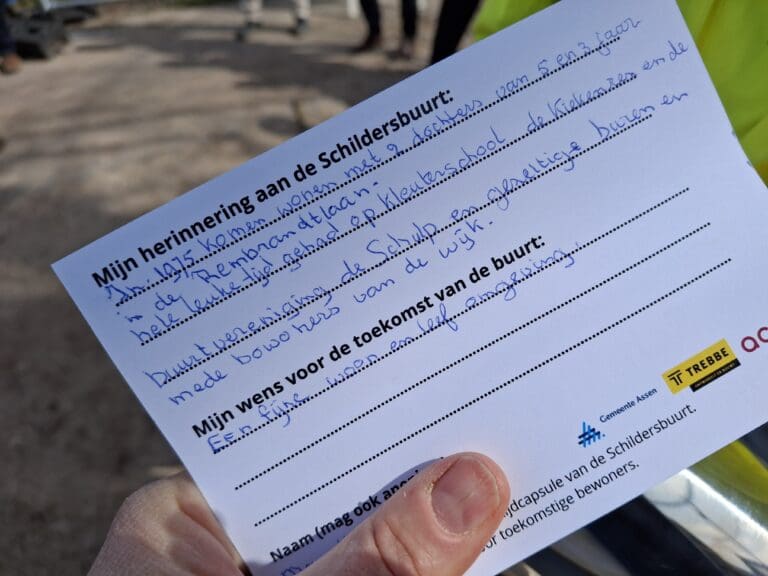 Mijn herinnering aan de Schildersbuurt:
In 1975 komen wonen met 2 dochters van 5 en 3 jaar
in de Rembrandtlaan.
hele leuke tijd gehad op kleuterschool de Kiekensen en de
buurtvereniging de Schulp en gezellige buren en
mede bowoners van de wijk.
Mijn wens voor de toekomst van de buurt:
Een fijne woon en leef omgeving.
TREBBE
Gemeente Assen
ijdcapsule van de Schildersbuurt.
or toekomstige bewoners.
Naam (mag ook